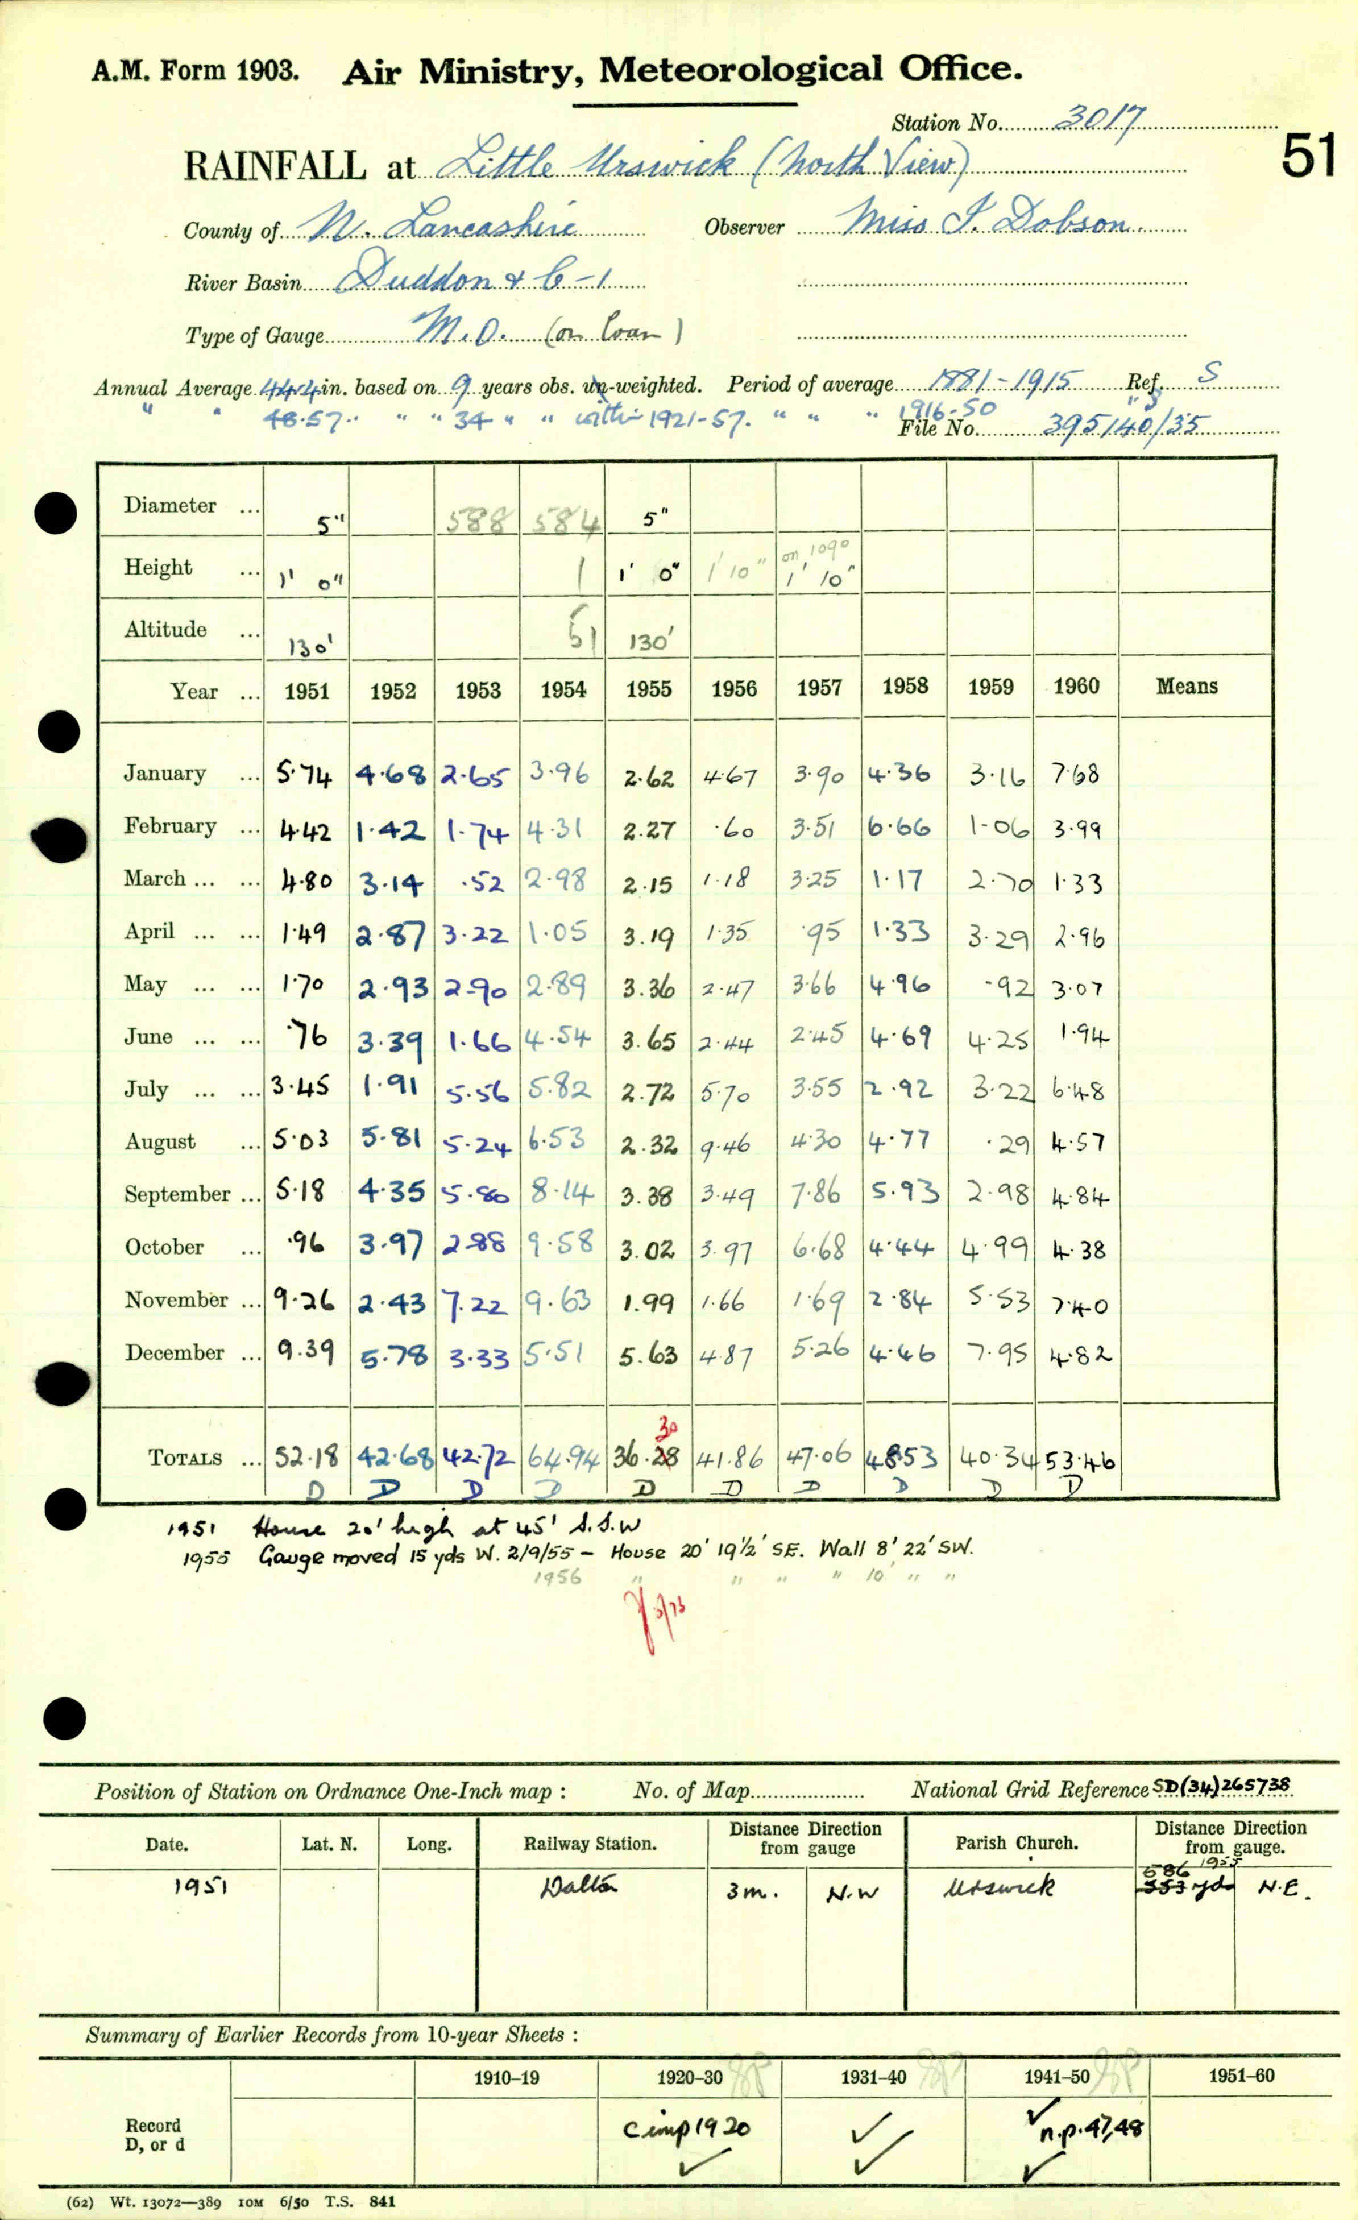 A.M. Form 1903. Air Ministry, Meteorological Office.
Station No. 3017
51
RAINFALL at Little Urswick (North View)
County of N. Lancashire Observer Miss I. Dobson.
River Basin Duddon & C-1
Type of Gauge M.O. (on loan)
Annual Average 44.4 in. based on 9 years obs. un-weighted. Period of average 1881-1915 Ref. S
" " 48.57 " " 34 " " within 1921-57. " " " 1916-50 " S
File No. 395140/35
Diameter ... 5" 588 584 5"
Height ... 1' 0" 1 1' 0" 1'10" on 1090 1' 10"
Altitude ... 130' 51 130'
Year ... 1951 1952 1953 1954 1955 1956 1957 1958 1959 1960 Means
January ... 5.74 4.68 2.65 3.96 2.62 4.67 3.90 4.36 3.16 7.68
February ... 4.42 1.42 1.74 4.31 2.27 .60 3.51 6.66 1.06 3.99
March ... ... 4.80 3.14 .52 2.98 2.15 1.18 3.25 1.17 2.70 1.33
April ... ... 1.49 2.87 3.22 1.05 3.19 1.35 .95 1.33 3.29 2.96
May ... ... 1.70 2.93 2.90 2.89 3.36 2.47 3.66 4.96 .92 3.07
June ... ... .76 3.39 1.66 4.54 3.65 2.44 2.45 4.69 4.25 1.94
July ... ... 3.45 1.91 5.56 5.82 2.72 5.70 3.55 2.92 3.22 6.48
August ... 5.03 5.81 5.24 6.53 2.32 9.46 4.30 4.77 .29 4.57
September ... 5.18 4.35 5.80 8.14 3.38 3.49 7.86 5.93 2.98 4.84
October ... .96 3.97 2.88 9.58 3.02 3.97 6.68 4.44 4.99 4.38
November ... 9.26 2.43 7.22 9.63 1.99 1.66 1.69 2.84 5.53 7.40
December ... 9.39 5.78 3.33 5.51 5.63 4.87 5.26 4.46 7.95 4.82
30
TOTALS ... 52.18 42.68 42.72 64.94 36.28 41.86 47.06 48.53 40.34 53.46
D D D D D D D D D D
1951 House 20' high at 45' S.S.W
1955 Gauge moved 15 yds W. 2/9/55 - House 20' 19½' SE. Wall 8' 22' SW.
1956 " " " " 10' " "
Position of Station on Ordnance One-Inch map : No. of Map National Grid Reference SD(34)265738
Date. Lat. N. Long. Railway Station. Distance from Direction gauge Parish Church. Distance from Direction gauge.
586 1955
1951 Dalton 3m. N.W Urswick 353 yds N.E.
Summary of Earlier Records from 10-year Sheets :
1910-19 1920-30 1931-40 1941-50 1951-60
Record D, or d Cimp 1920 ✓ ✓ ✓ ✓ n.p. 47,48 ✓
(62) Wt. 13072—389 10M 6/50 T.S. 841